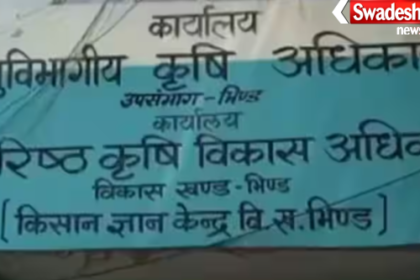 Swadesh
news
कार्यालय
ुविभागीय कृषि अधिका
उपसंभाग-भिण्ड
कार्यालय
रिष्ठ कृषि विकास अधिक
विकास खण्ड-भिण्ड
[ किसान ज्ञान केन्द्र वि.ख.भिण्ड ]